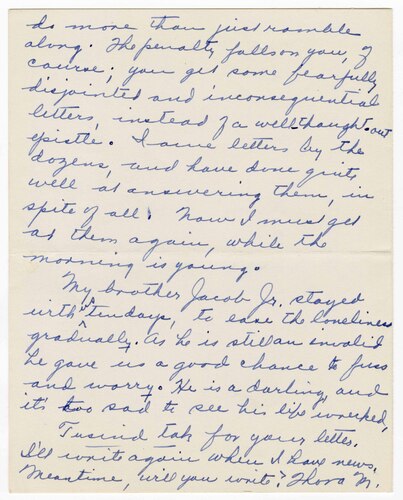 do more than just ramble
along. The penalty falls on you, of
course; you get some fearfully
disjointed and inconsequential
letters, instead of a well-thought-out
epistle. I owe letters by the
dozens, and have done quite
well at answering them, in
spite of all. Now I must get
at them again, while the
morning is young.
My brother Jacob Jr. stayed
with us ten days, to ease the loneliness
gradually. As he is still an invalid
he gave us a good chance to fuss
and worry. He is a darling, and
it's too sad to see his life wrecked.
Tusind tak for your letter.
I'll write again when I have news.
Meantime, will you write? Thora M.